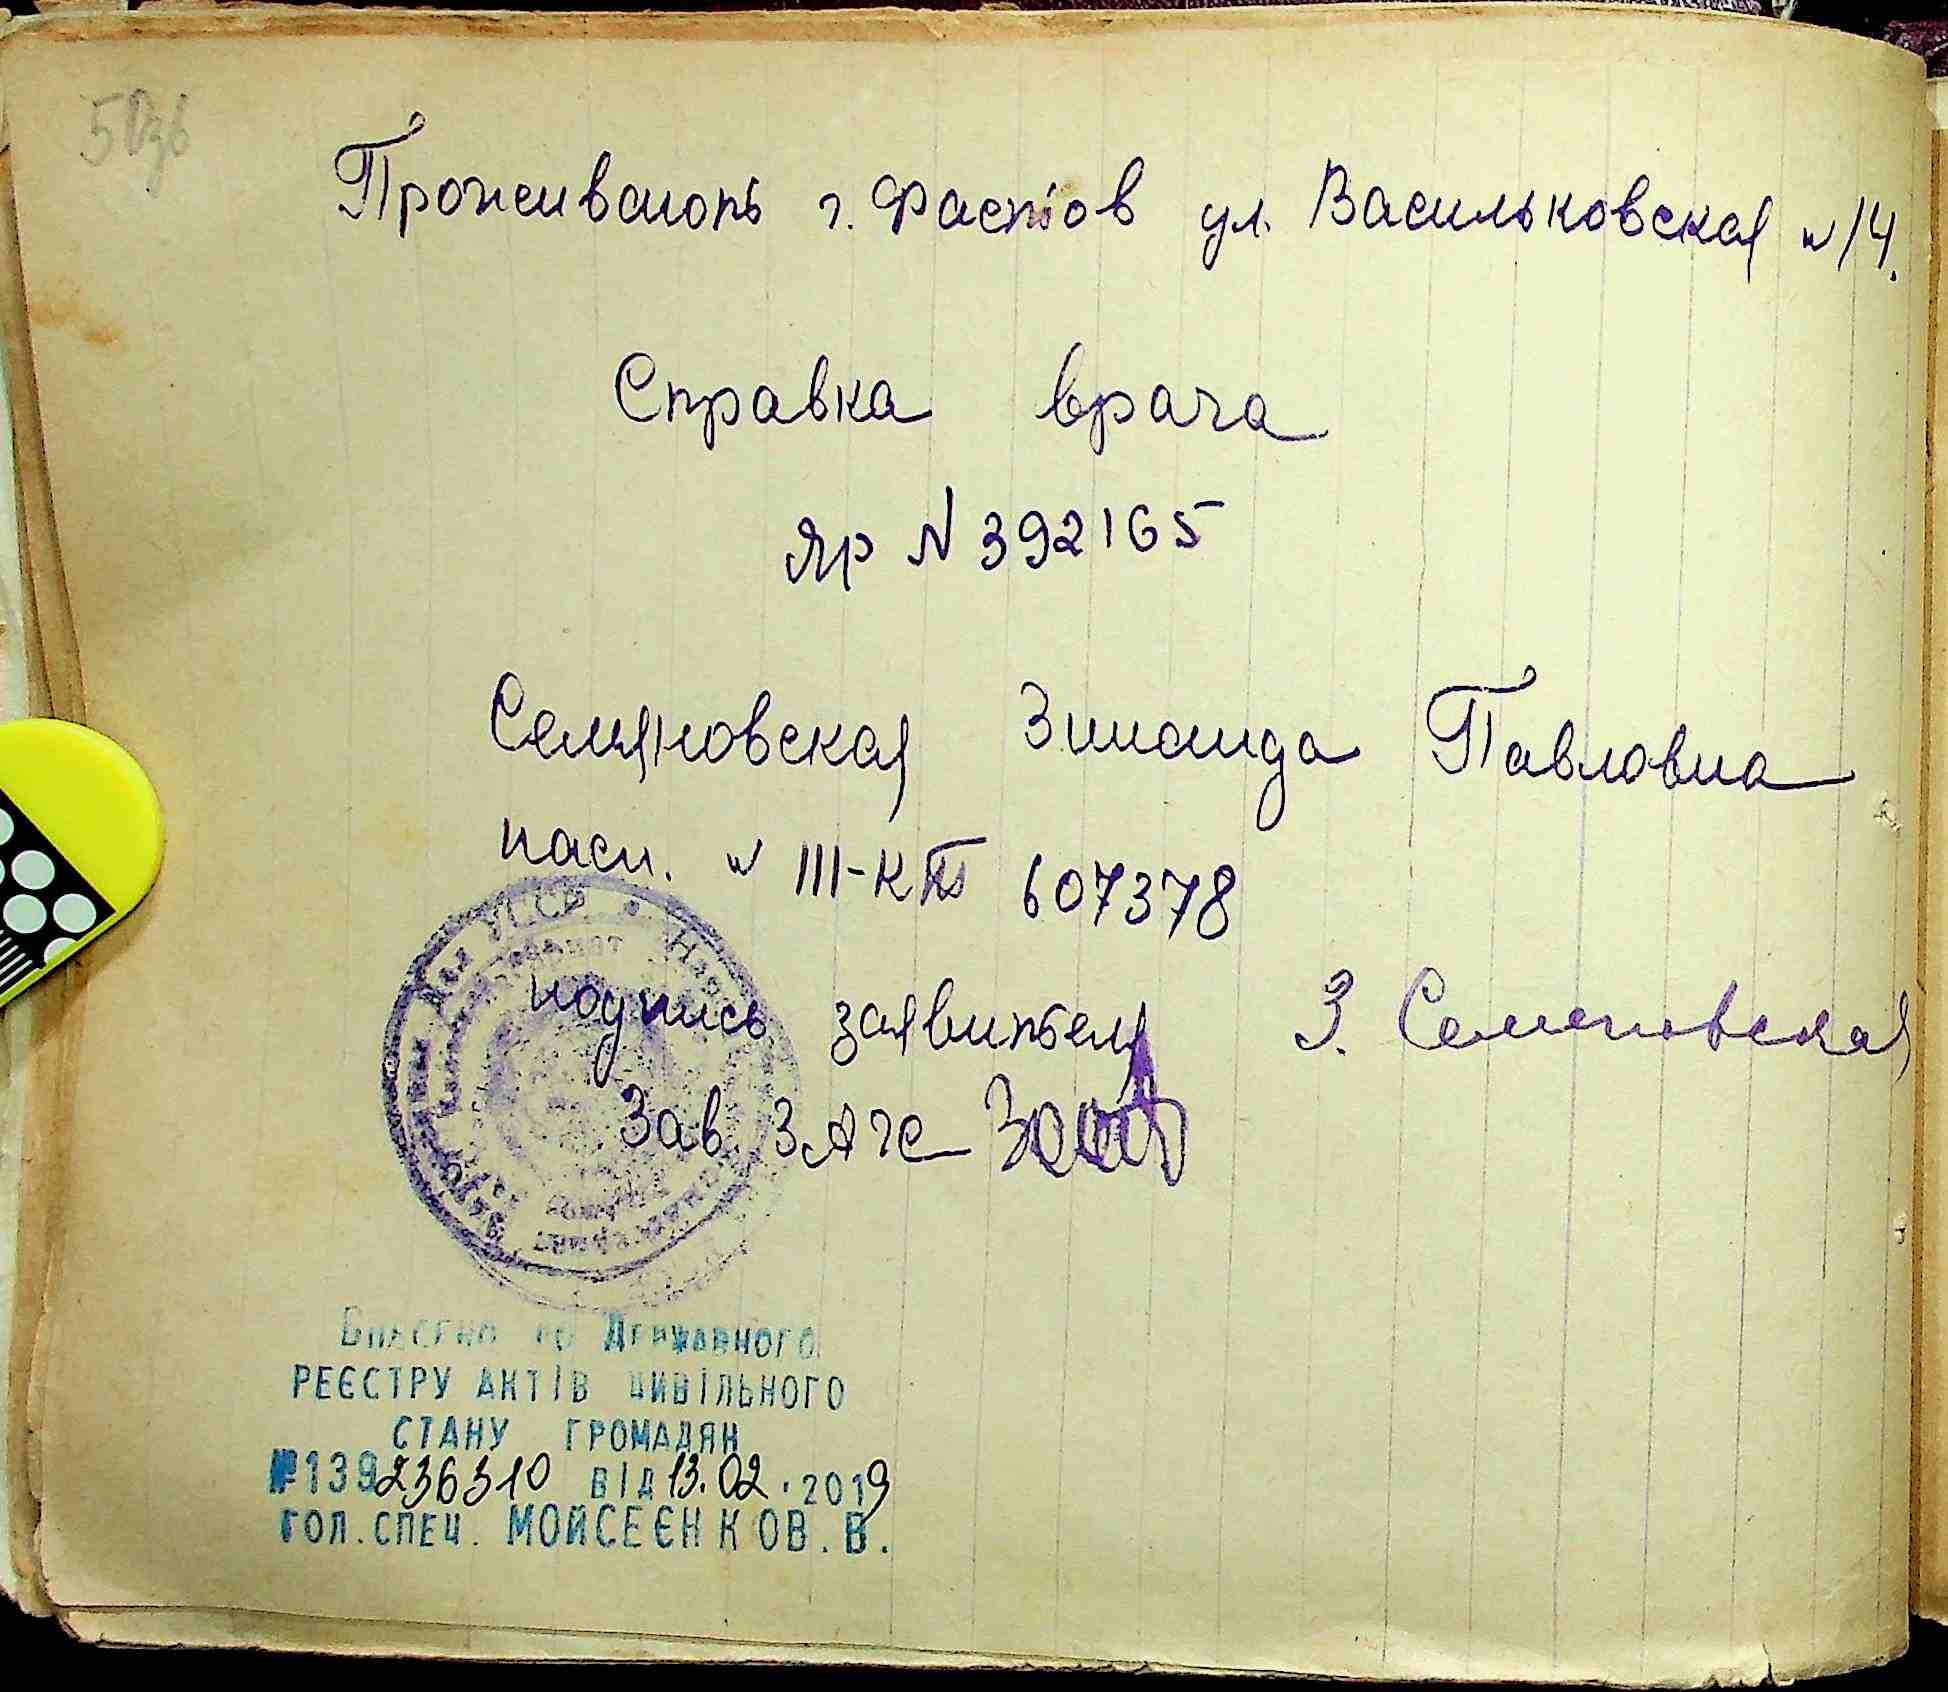 50зв
Проживают г. Фастов ул. Васильковская №14.
Справка врача
ЯР N 392165
Семяновская Зинаида Павловна
пасп. № III-КТ 607378
подпись заявителя З. Семеновская
Зав. ЗАГС
Внесено до Державного
РЕЄСТРУ АКТІВ ЦИВІЛЬНОГО
СТАНУ ГРОМАДЯН
№139236310 ВІД 13.02.2019
ГОЛ. СПЕЦ. МОЙСЕЄНКО В. В.